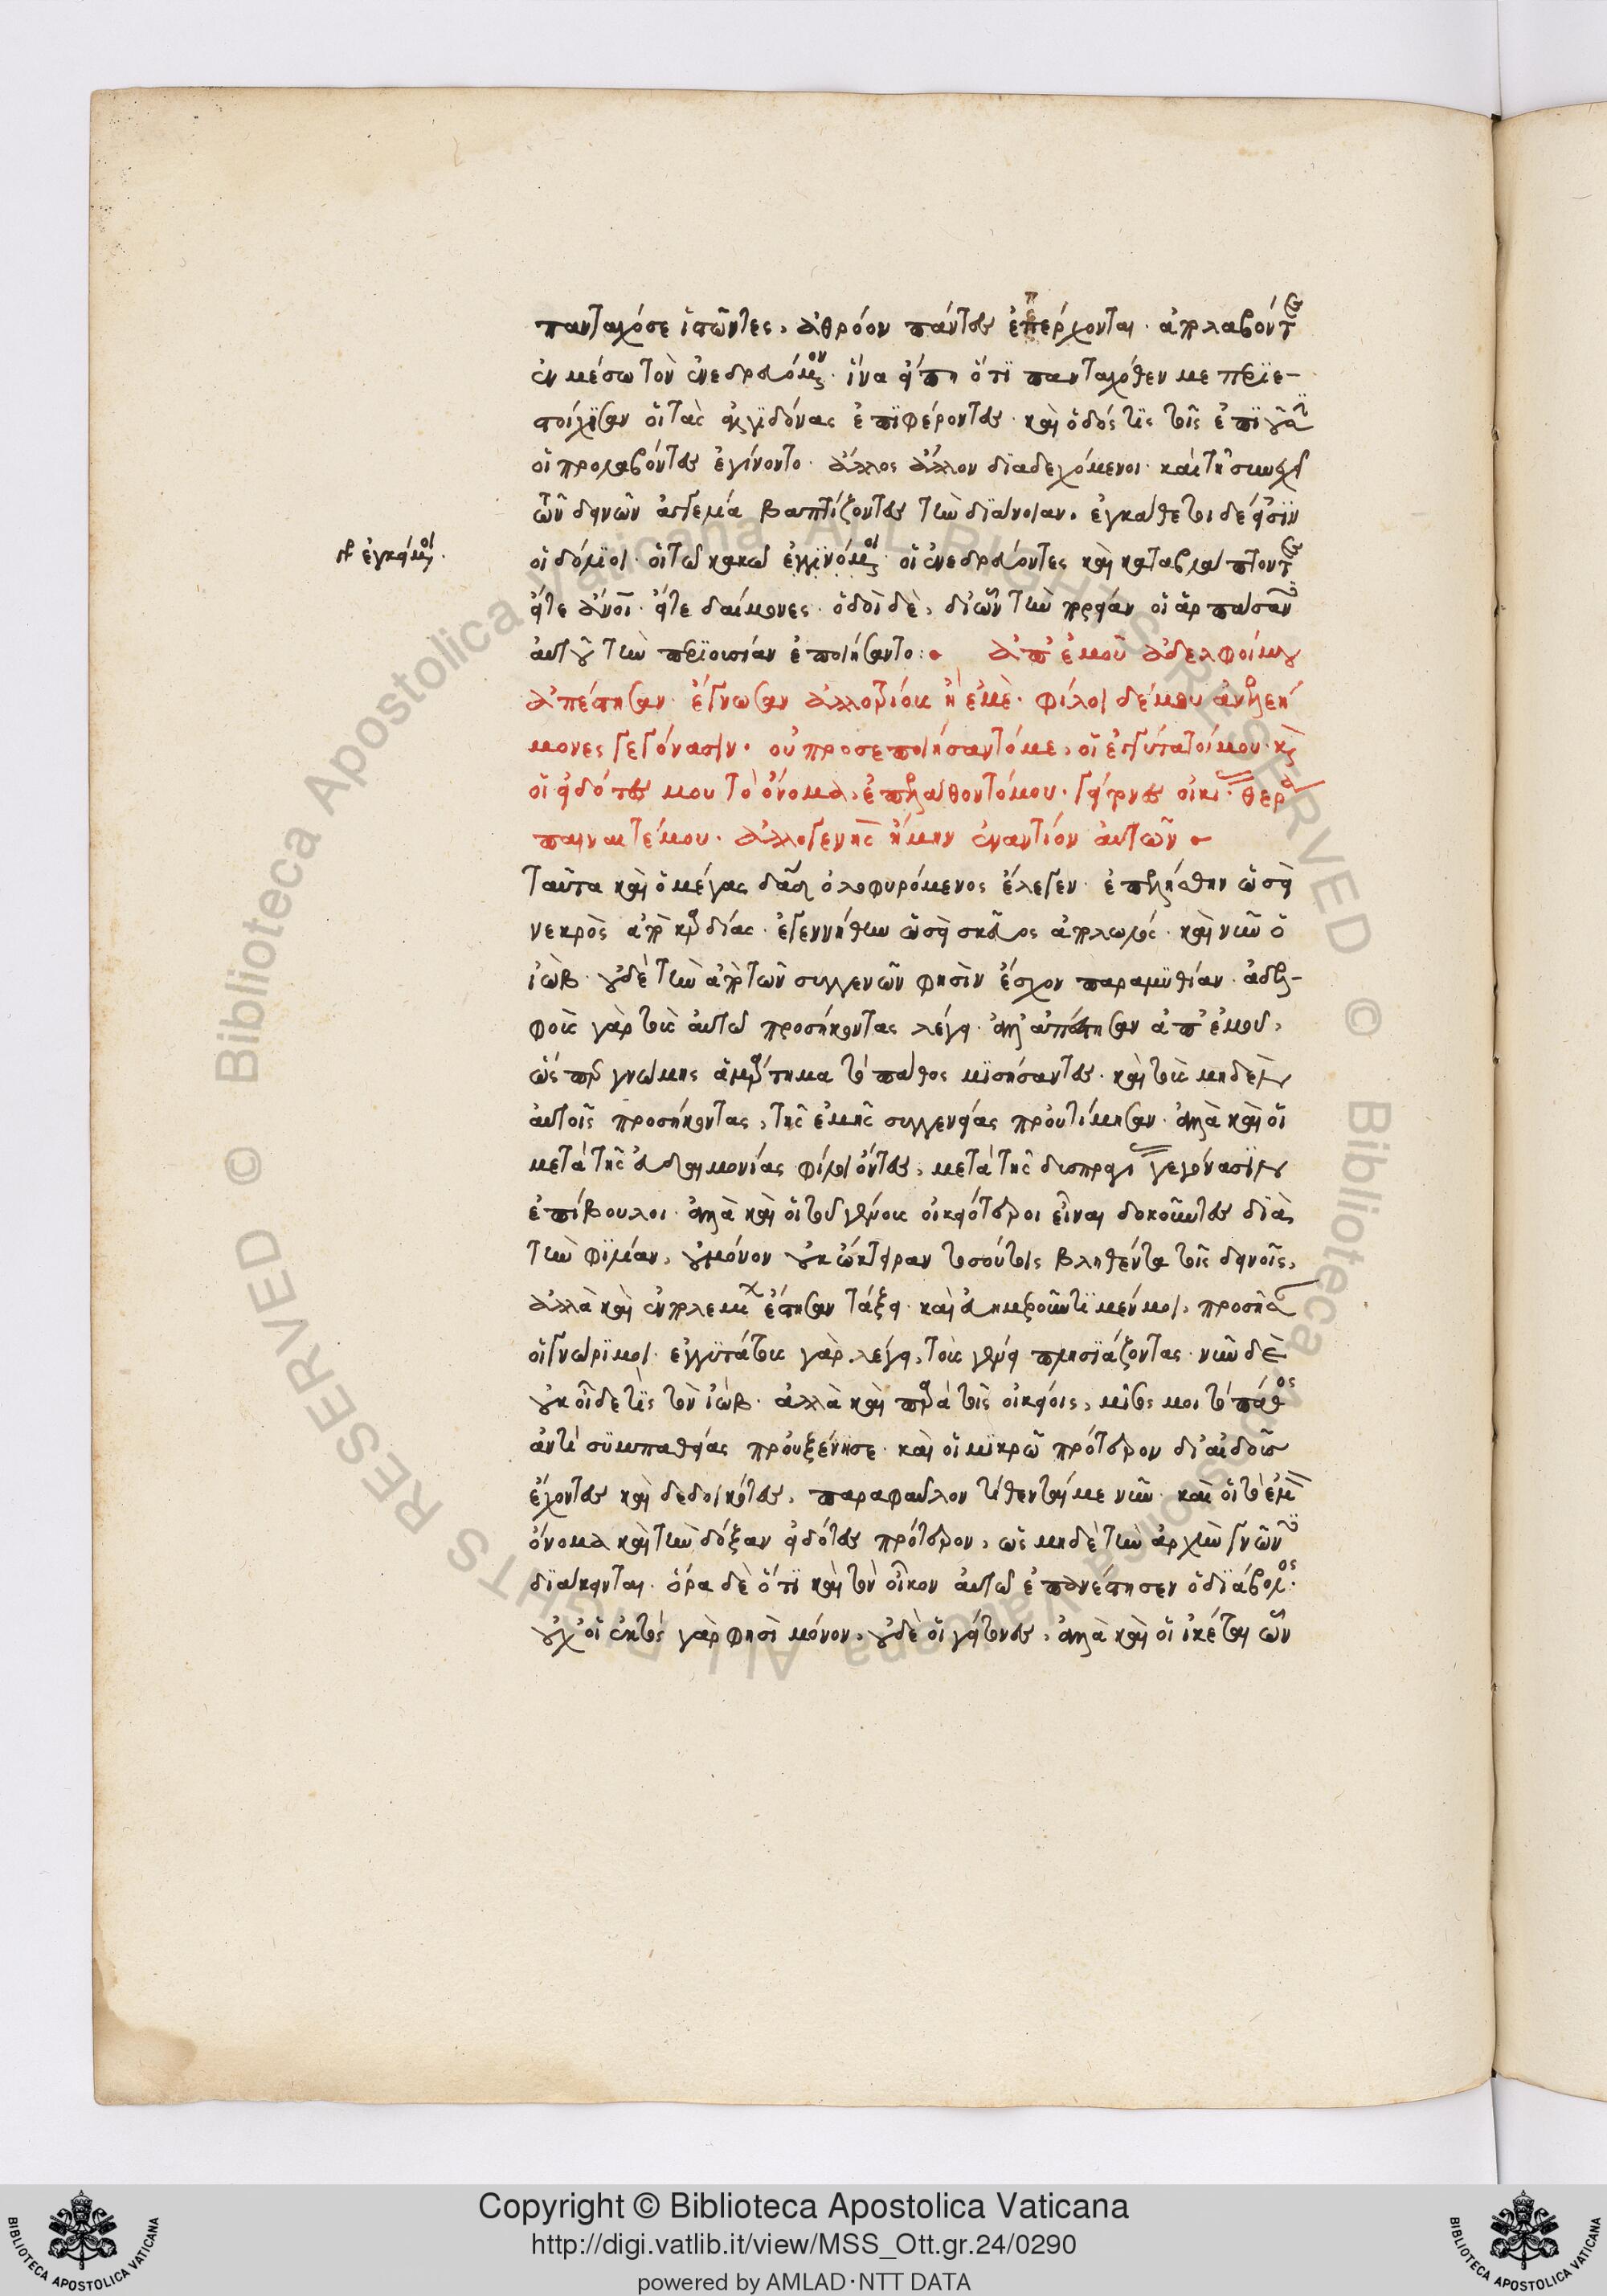 πανταχόσε ἱστῶντες, ἀθρόον πάντες ἐπέρχονται· ἀπολαβόντες
ἐν μέσω τὸν ἐνεδρευόμενον· ἵνα εἴπη ὅτι πανταχόθεν με περιε-
στοίχισαν οἱ τὰς ἀλγηδόνας ἐπιφέροντες· καὶ ὁδός τις τοῖς ἐπιοῦσι
οἱ προλαβόντες ἐγίνοντο· ἄλλος ἄλλον διαδεχόμενοι· καὶ τῆ συνεχεία
τῶν δεινῶν
βαπτίζοντες τὴν διάνοιαν· ἐγκάθετοι δέ εἰσιν
οἱ δόλιοι· οἱ τῶ κακῶ ἐγγινόμενοι· οἱ ἐνεδρεύοντες καὶ καταβλάπτοντες
εἴτε ἄνοι· εἴτε δαίμονες· ὁδοὶ δὲ, δι' ὧν τὴν
οἱ ἁρπάσαντες
αὐτοῦ τὴν περιουσίαν ἐποιήσαντο: ἀπ' ἐμοῦ ἀδελφοί μου
ἀπέστησαν· ἔγνωσαν ἀλλοτρίους ἢ ἐμὲ· φίλοι δέ μου ἀνελεή
μονες γεγόνασιν· οὐ προσεποιήσαντό με, οἱ ἐγγύτατοί μου· καὶ
οἱ εἰδότες μου τὸ ὄνομα, ἐπελάθοντό μου· γείτονες οἰκίας· θερά
παιναί τέ μου· ἀλλογενὴς ἤμην ἐναντίον αὐτῶν
ταῦτα καὶ ὁ μέγας δαδ ὀλοφυρόμενος ἔλεγεν· ἐπελήσθην ὡσεὶ
νεκρὸς ἀπὸ καρδίας· ἐγενήθην ὡσεὶ σκεῦος ἀπολωλός· καὶ νῦν ὁ
ἰὼβ· οὐδὲ τὴν ἀπὸ τῶν συγγενῶν φησὶν ἔσχον παραμυθίαν· ἀδελ-
φοὺς γὰρ τοὺς αὐτῶ προσήκοντας λέγει· ἀλλ' ἀπέστησαν ἀπ' ἐμοῦ,
ὡς παρὰ γνώμης ἁμάρτημα τὸ πάθος μισήσαντες· καὶ τοὺς μηδὲν
αὐτοῖς προσήκοντας, τῆς ἐμῆς συγγενείας προὐτίμησαν· ἀλλὰ καὶ οἱ
μετὰ τῆς εὐδαιμονίας φίλοι ὄντες, μετὰ τῆς δυσπραγίας γεγόνασιν
ἐπίβουλοι· ἀλλὰ καὶ οἱ τοῦ γένους οἰκειότεροι εἶναι δοκοῦντες διὰ
τὴν φιλίαν, οὐ μόνον οὐκ ὤκτειραν τοσούτοις βληθέντα τοῖς δεινοῖς,
ἀλλὰ καὶ ἐν πολεμίων ἔστησαν τάξει· καὶ εὐημεροῦντι μέν μοι, προσῆσαν
οἱ γνώριμοι· ἐγγυτάτους γὰρ λέγει, τοὺς γένει πλησιάζοντας· νῦν δὲ
οὐκ οἶδέ τις τὸν ἰώβ· ἀλλὰ καὶ παρὰ τοῖς οἰκείοις, μῖσός μοι τὸ πάθος
ἀντὶ συμπαθείας προὐξένησε· καὶ οἱ μικρῶ πρότερον δι' αἰδοῦς
ἔχοντες καὶ δεδοικότες, παραφαῦλον τίθενταί με νῦν· καὶ οἱ τὸ ἐμὸν
ὄνομα καὶ τὴν δόξαν εἰδότες πρότερον, ὡς μηδὲ τὴν ἀρχὴν γνῶντες
διάκεινται· ὅρα δὲ ὅτι καὶ τὸν οἶκον αὐτῶ ἐπανέστησεν ὁ διάβολος·
οὐχ οἱ ἐκτὸς γάρ φησι μόνον, οὐδὲ οἱ γείτονες, ἀλλὰ καὶ οἱ ἱκέται ὧν
Copyright © Biblioteca Apostolica Vaticana
http://digi.vatlib.it/view/MSS_Ott.gr.24/0290
powered by AMLAD·NTT DATA
BIBLIOTECA APOSTOLICA VATICANA
BIBLIOTECA APOSTOLICA VATICANA
© Biblioteca Apostolica Vaticana ALL RIGHTS RESERVED © Biblioteca Apostolica Vaticana ALL RIGHTS RESERVED